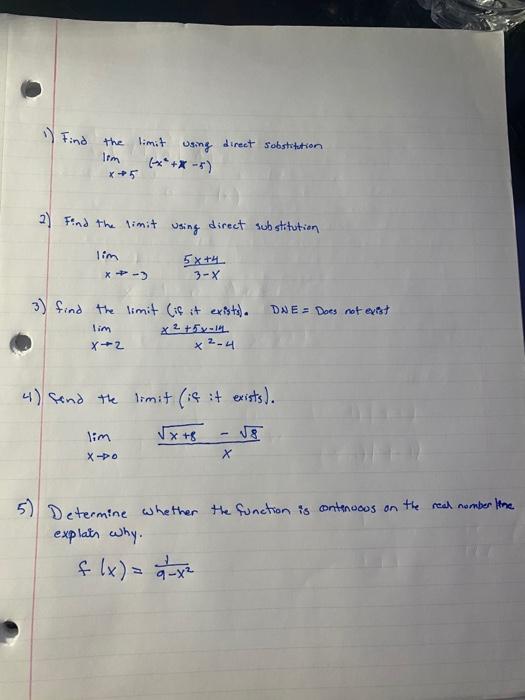 1) Find the limit using direct substitution
lim (-x² + x - 5)
x → 5
2) Find the limit using direct substitution
lim 5x+4
x → -3 3-x
3) find the limit (if it exists). DNE = Does not exist
lim x² + 5x - 14
x → 2 x² - 4
4) find the limit (if it exists).
lim √x+8 - √8
x → 0 x
5) Determine whether the function is continuous on the real number line
explain why.
f (x) = 1
9-x²